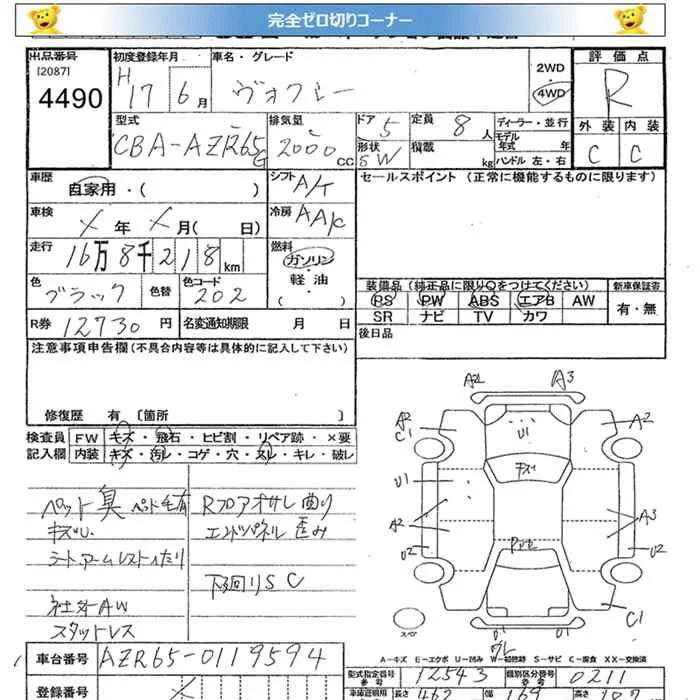 完全ゼロ切りコーナー
出品番号 初度登録年月 車名・グレード 2WD 評価点
[2087] H
4490 17 6月 ヴォクシー 4WD R
型式 排気量 ドア 定員 ディーラー・並行 外装 内装
CBA-AZR65G 2000 CC 5 8人 モデル年式 年
形状 5W 積載 kg ハンドル 左・右 C C
車歴 自家用・( ) シフト A/T セールスポイント (正常に機能するものに限ります)
車検 X年 X月( 日) 冷房 AA/C
走行 16万8千218km 燃料 ガソリン・軽油・( )
色 ブラック 色替 色コード 202 装備品 (純正品に限り○をつけてください) 新車保証書
PS PW ABS エアB AW 有・無
R券 12730円 名変通知期限 月 日 SR ナビ TV カワ
注意事項申告欄(不具合内容等は具体的に記入して下さい) 後日品
修復歴 有 [箇所 ]
検査員 FW キズ・飛石・ヒビ割・リペア跡・×要
記入欄 内装 キズ・汚レ・コゲ・穴・スレ・キレ・破レ
ペット臭 ペット毛有 Rフロアオサレ曲り
キズU. エンドパネル歪み
シートアームレストイタリ
下廻りSC
社外AW
スタットレス
A2 A3
A2 C1 U1 A2
U1 キズ
A2 A3
U2 U2
C1
スペア U1 U1
ワレ
A-キズ E-エクボ U-凹み W-補修跡 S-サビ C-腐食 XX-交換済
車台番号 AZR65-0119594 型式指定番号 参考 12543 類別区分番号 参考 0211
登録番号